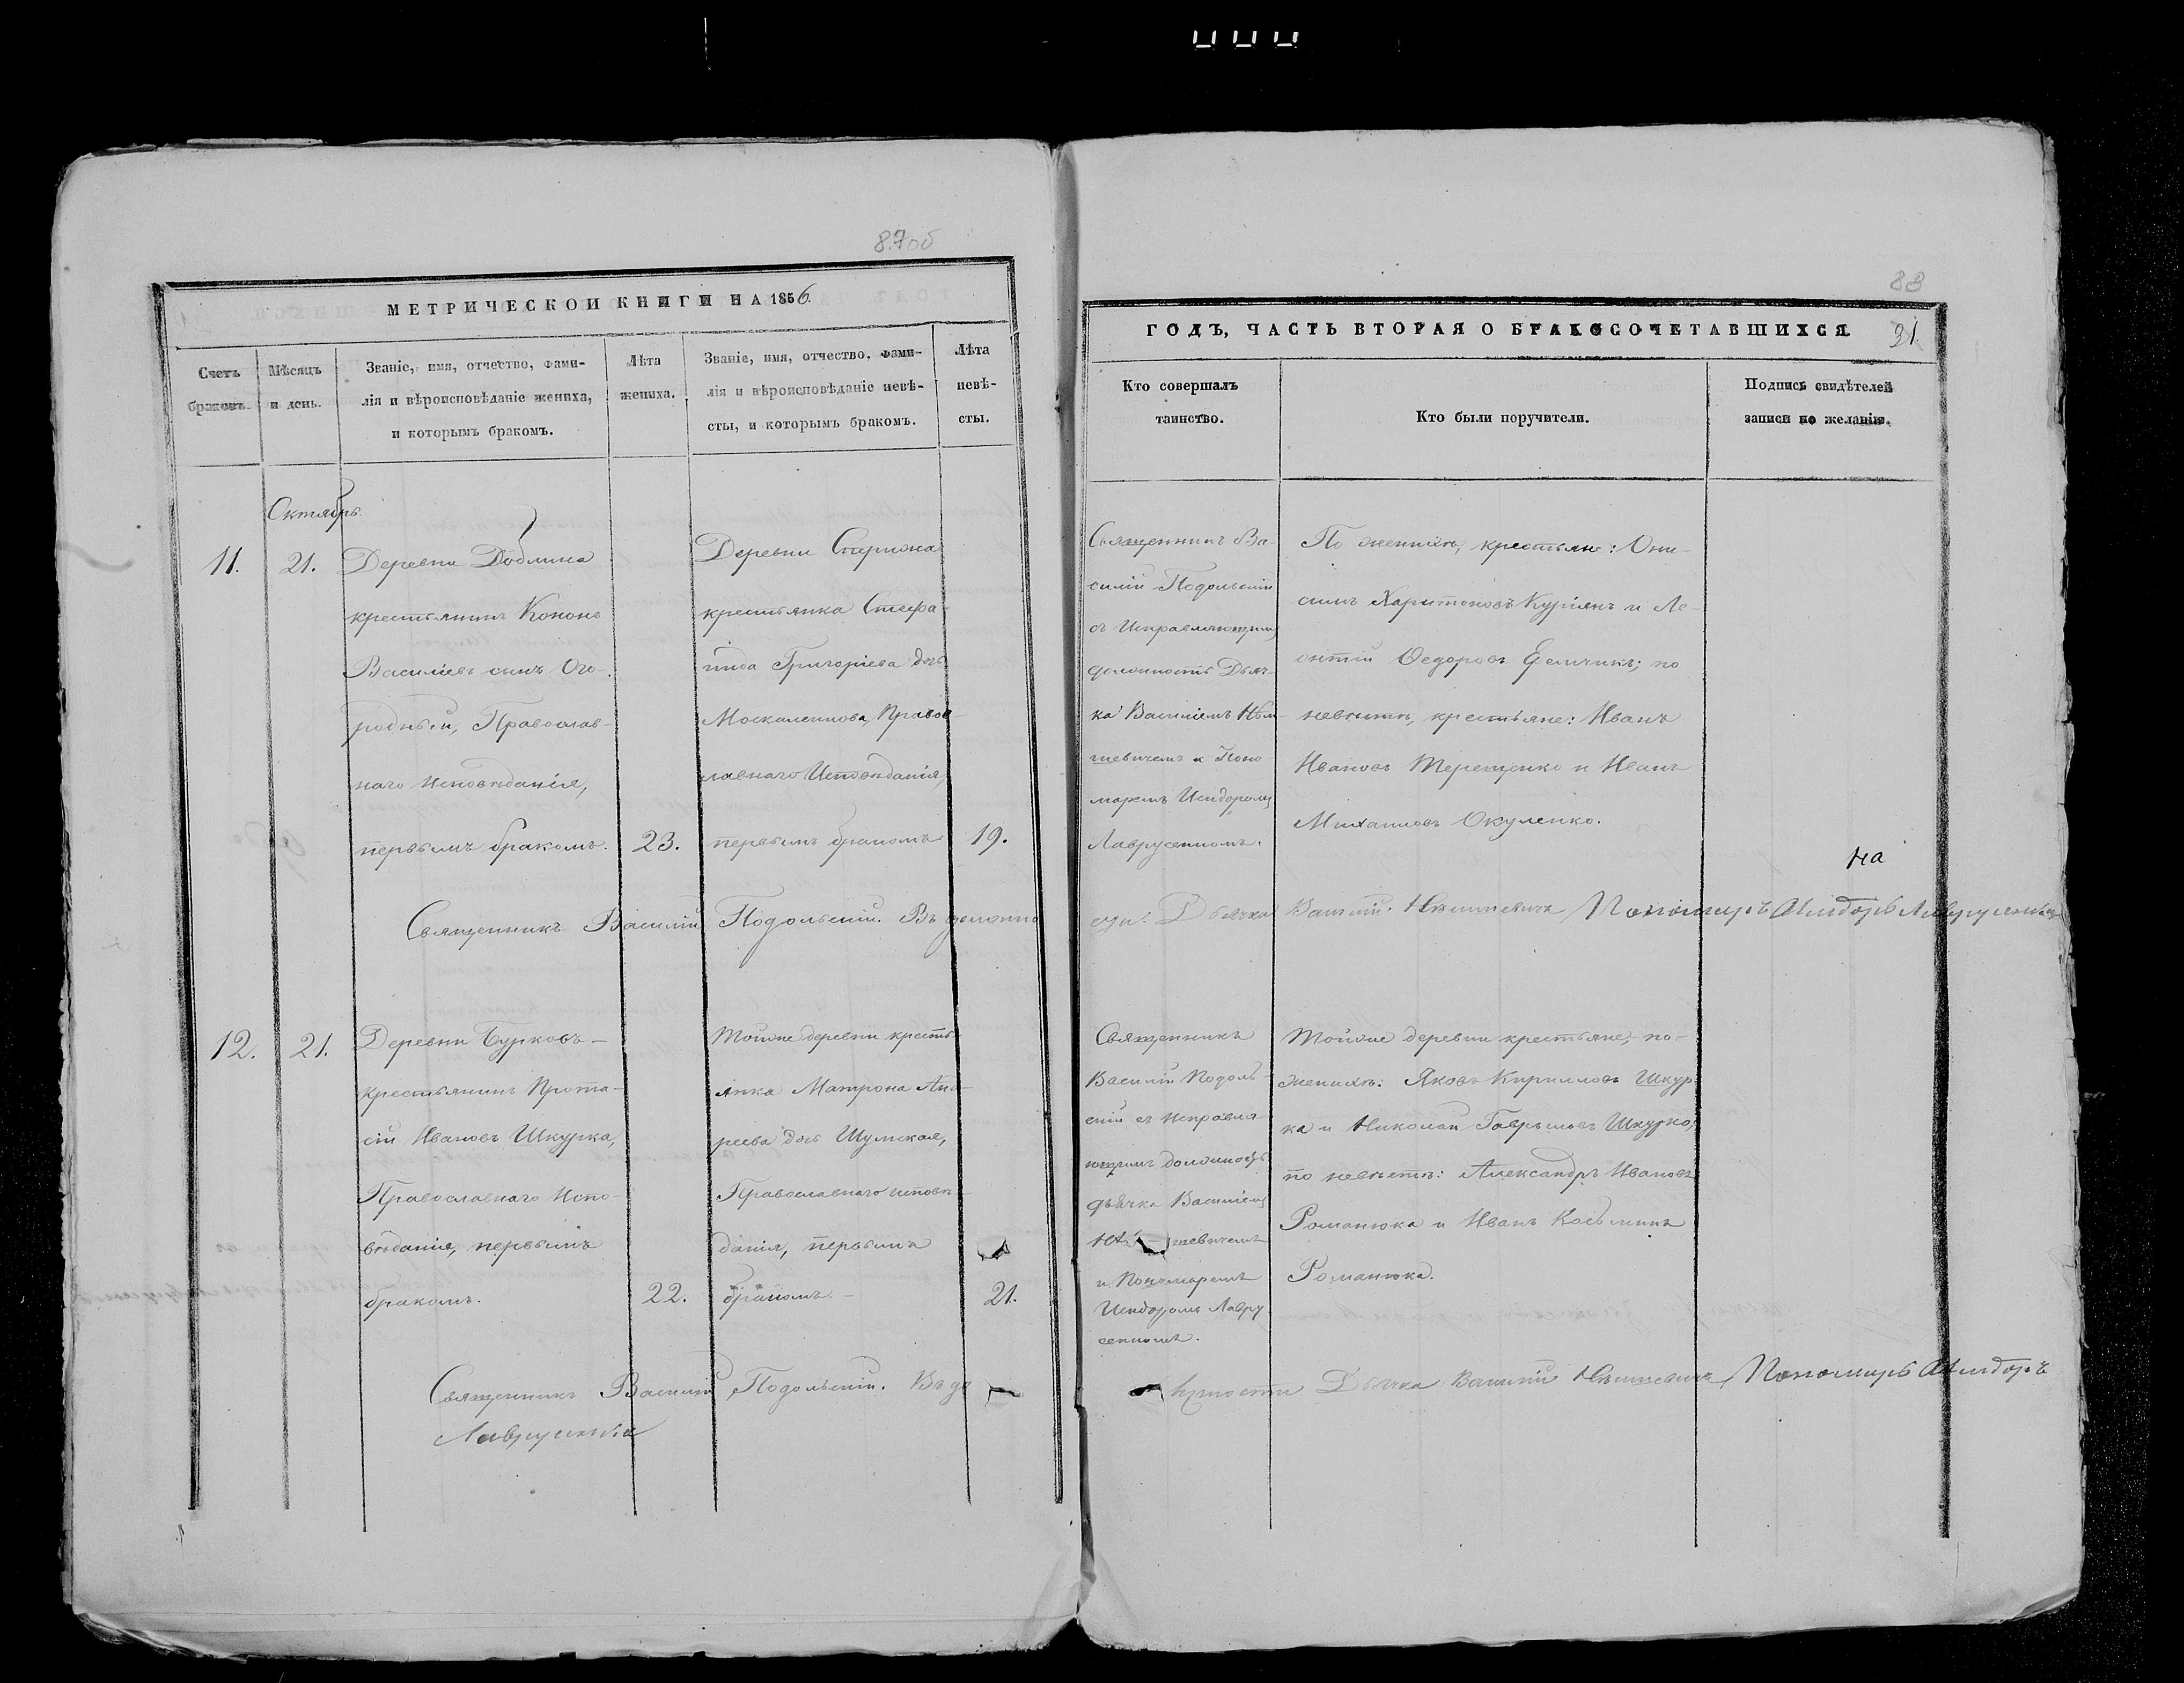 87об
МЕТРИЧЕСКОЙ КНИГИ НА 1856.
Счетъ
браковъ.
Мѣсяцъ
и день.
Званіе, имя, отчество, фами-
лія и вѣроисповѣданіе жениха,
и которымъ бракомъ.
Лѣта
жениха.
Званіе, имя, отчество, фами-
лія и вѣроисповѣданіе невѣ-
сты, и которымъ бракомъ.
Лѣта
невѣ-
сты.
Октябрь
11.
21.
Деревни
крестьянинъ Кононъ
Василіевъ сынъ Ого-
родный, Православ-
наго исповѣданія,
первымъ бракомъ.
23.
Деревни Стержна
крестьянка Стефа-
нида Григоріева дочь
Москаленкова, Правос-
лавнаго Исповѣданія,
первымъ бракомъ
19.
Священникъ Василій Подольскій. Въ должно
12.
21.
Деревни Бурковъ-
крестьянинъ Прота-
сій Ивановъ Шкурка,
Православнаго Испо-
вѣданія, первымъ
бракомъ.
22.
Тойже деревни кресть-
янка Матрона Анд-
реева дочь Шумская,
Православнаго исповѣ-
данія, первымъ
бракомъ.-
21.
Священникъ Василій Подольскій. Въ до
Лаврусенко
83
ГОДЪ, ЧАСТЬ ВТОРАЯ О БРАКОСОЧЕТАВШИХСЯ
31.
Кто совершалъ
таинство.
Кто были поручители.
Подпись свидѣтелей
записи по желанію.
Священникъ Ва-
силій Подольскій
съ Исправляющимъ
должность Дьяч-
ка Василіемъ
и Поно
маремъ Исидоромъ
Лаврусенкомъ.
По женихѣ, крестьяне: Они-
симъ Харитоновъ Куріянъ и Ле-
онтій Ѳедоровъ; по
невѣстѣ, крестьяне: Иванъ
Ивановъ Терещенко и Иванъ
Михаиловъ Окуленко.
на
сти Дьячка Василій Пономарь Исидоръ Лаврусенко
Священникъ
Василій Подоль-
скій съ Исправля-
ющимъ должность
дьячка Василіемъ
и Пономаремъ
Исидоромъ Лавру
сенкомъ.
Тойже деревни крестьяне, по-
женихѣ: Яковъ Кирилловъ Шкур-
ка и Николай Гаврыловъ Шкурко,
по невѣстѣ: Александръ Ивановъ
Романюка и Иванъ Косьминъ
Романюка.
жности Дьячка Василій Пономарь Исидоръ